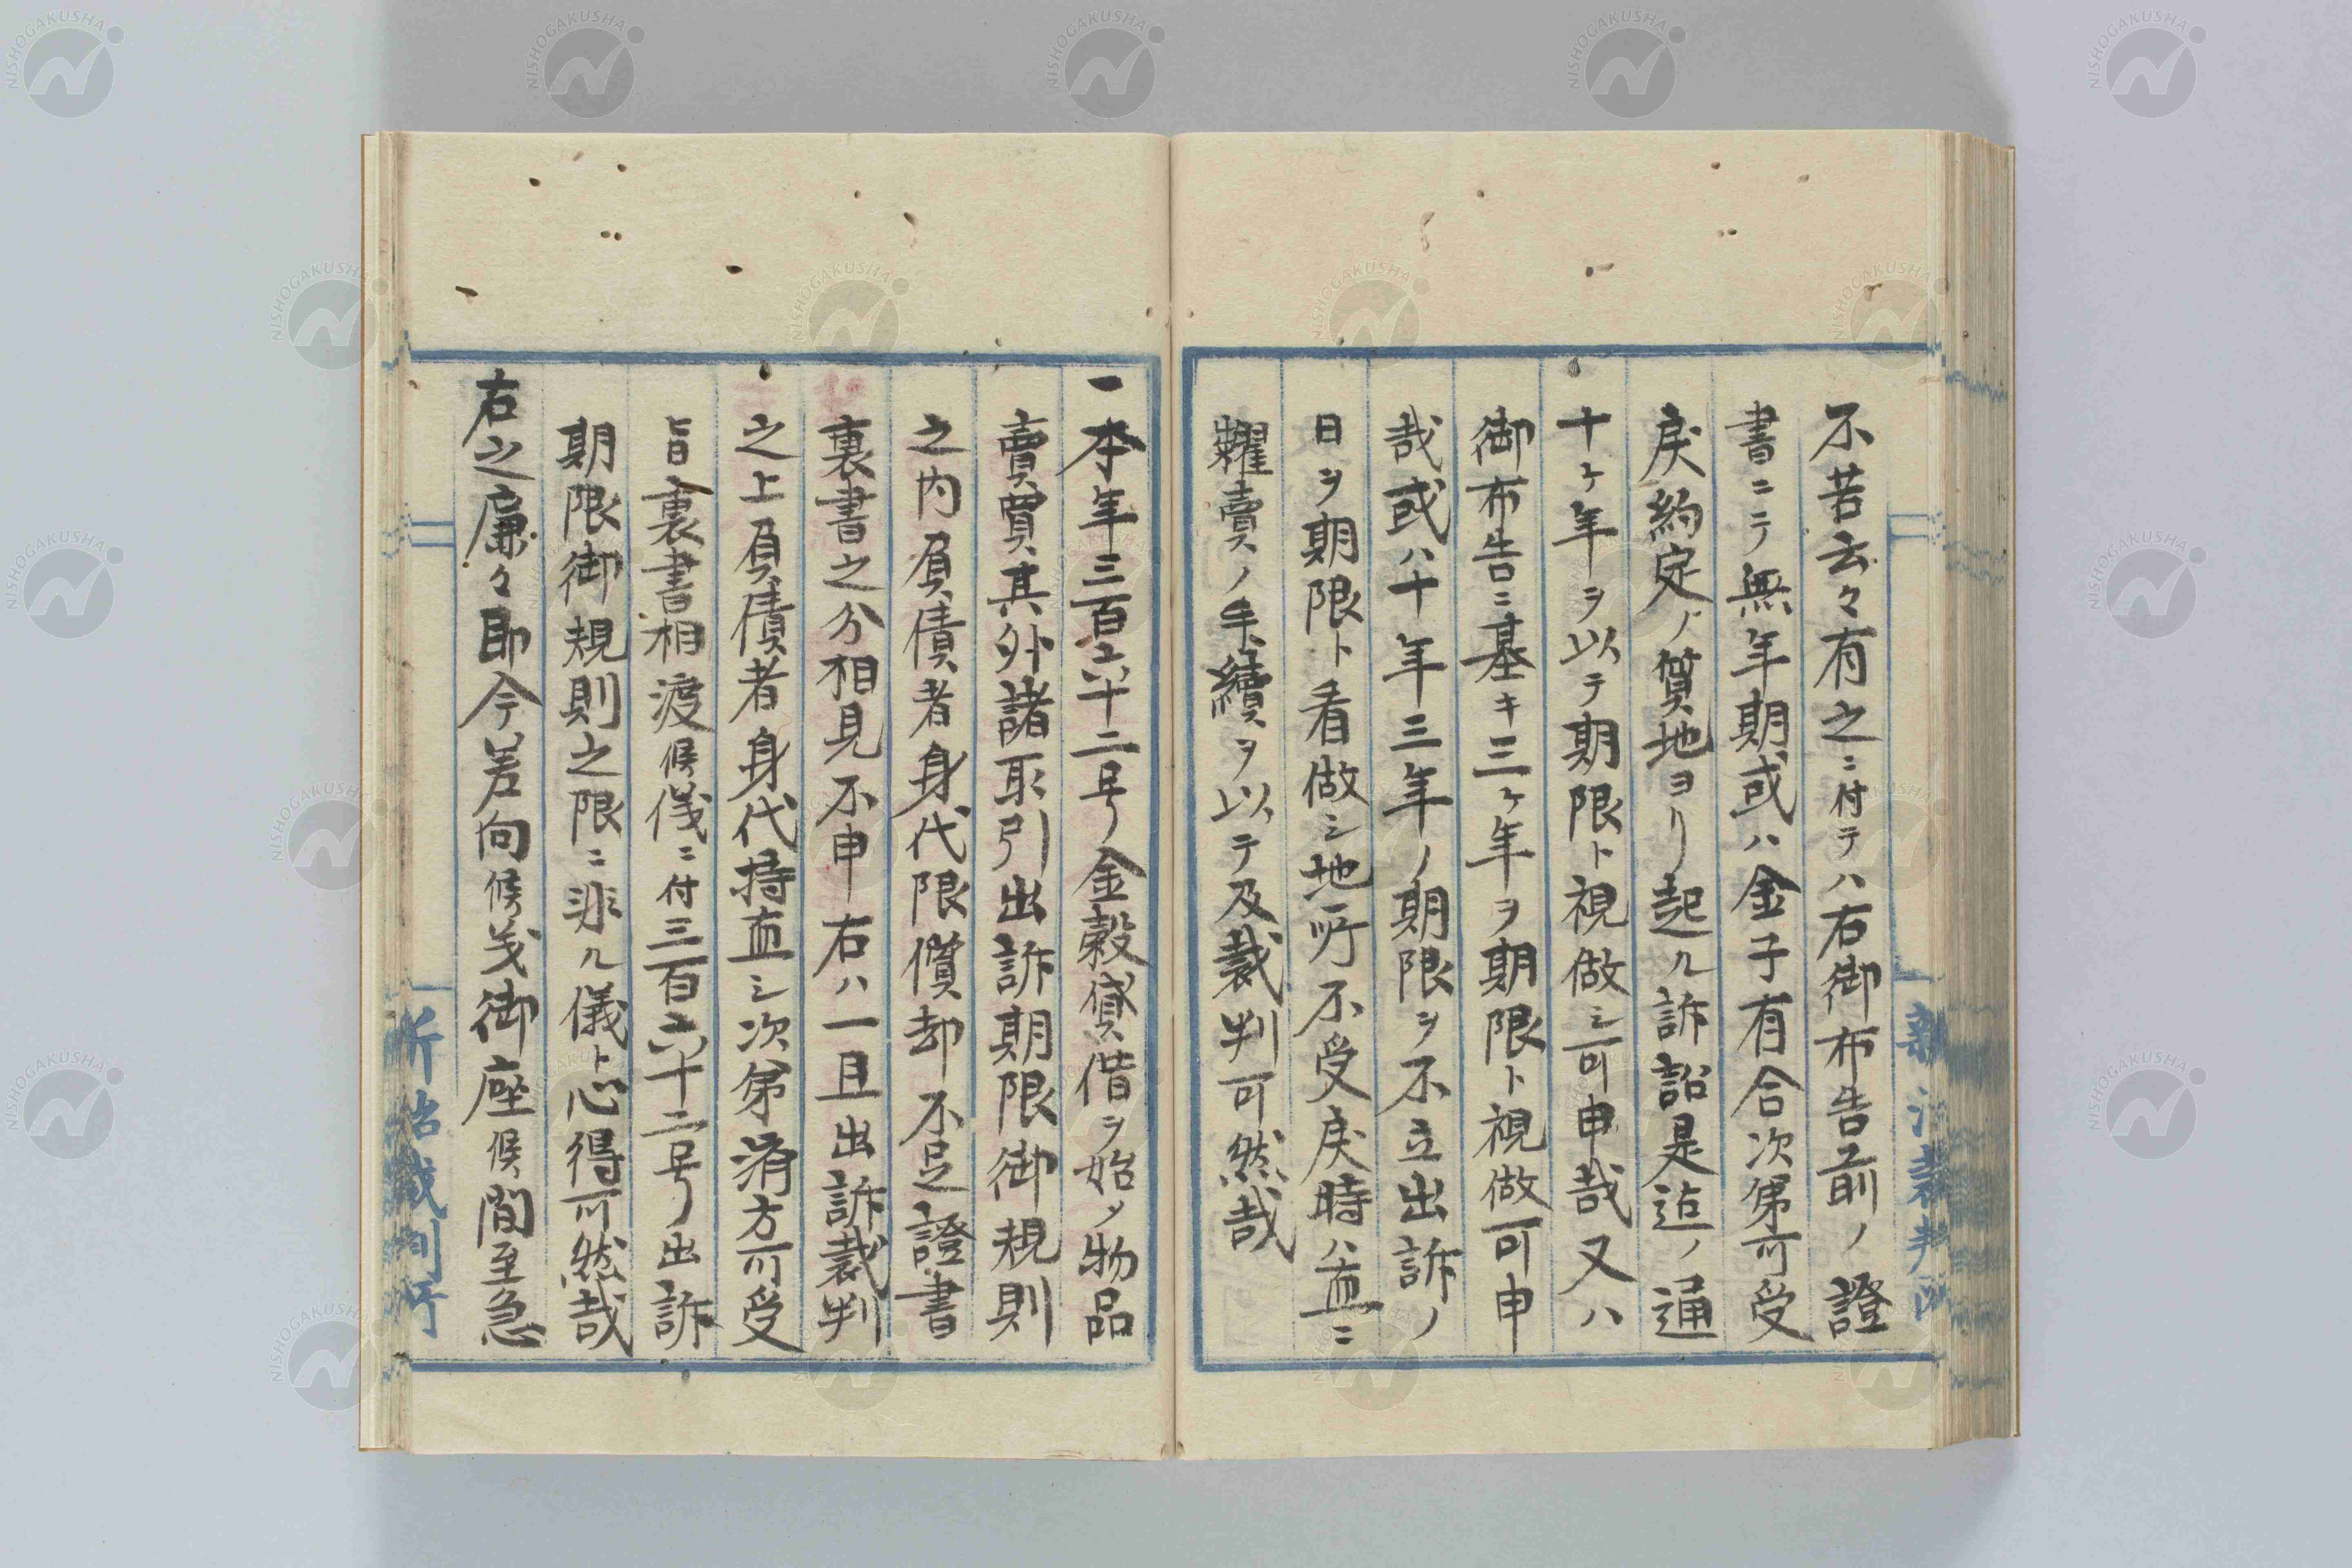 不若云々有之ニ付テハ右御布告前ノ證
書ニテ無年期或ハ金子有合次第可受
戻約定ノ質地ヨリ起ル訴訟是迠ノ通
十ケ年ヲ以テ期限ト視做シ可申哉又ハ
御布告ニ基キ三ケ年ヲ期限ト視做可申
哉或ハ十年三年ノ期限ヲ不立出訴ノ
日ヲ期限ト看做シ地所不受戻時ハ直ニ
糶賣ノ手續ヲ以テ及裁判可然哉
一本年三百六十二号金穀貸借ヲ始メ物品
賣買其外諸取引出訴期限御規則
之内負債者身代限償却不足證書
裏書之分相見不申右ハ一旦出訴裁判
之上負債者身代持直シ次第済方可受
旨裏書相渡候儀ニ付三百六十二号出訴
期限御規則之限ニ非ル儀ト心得可然哉
右之廉々即今差向候義御座候間至急
新治裁判所
新治裁判所
NISHOGAKUSHA